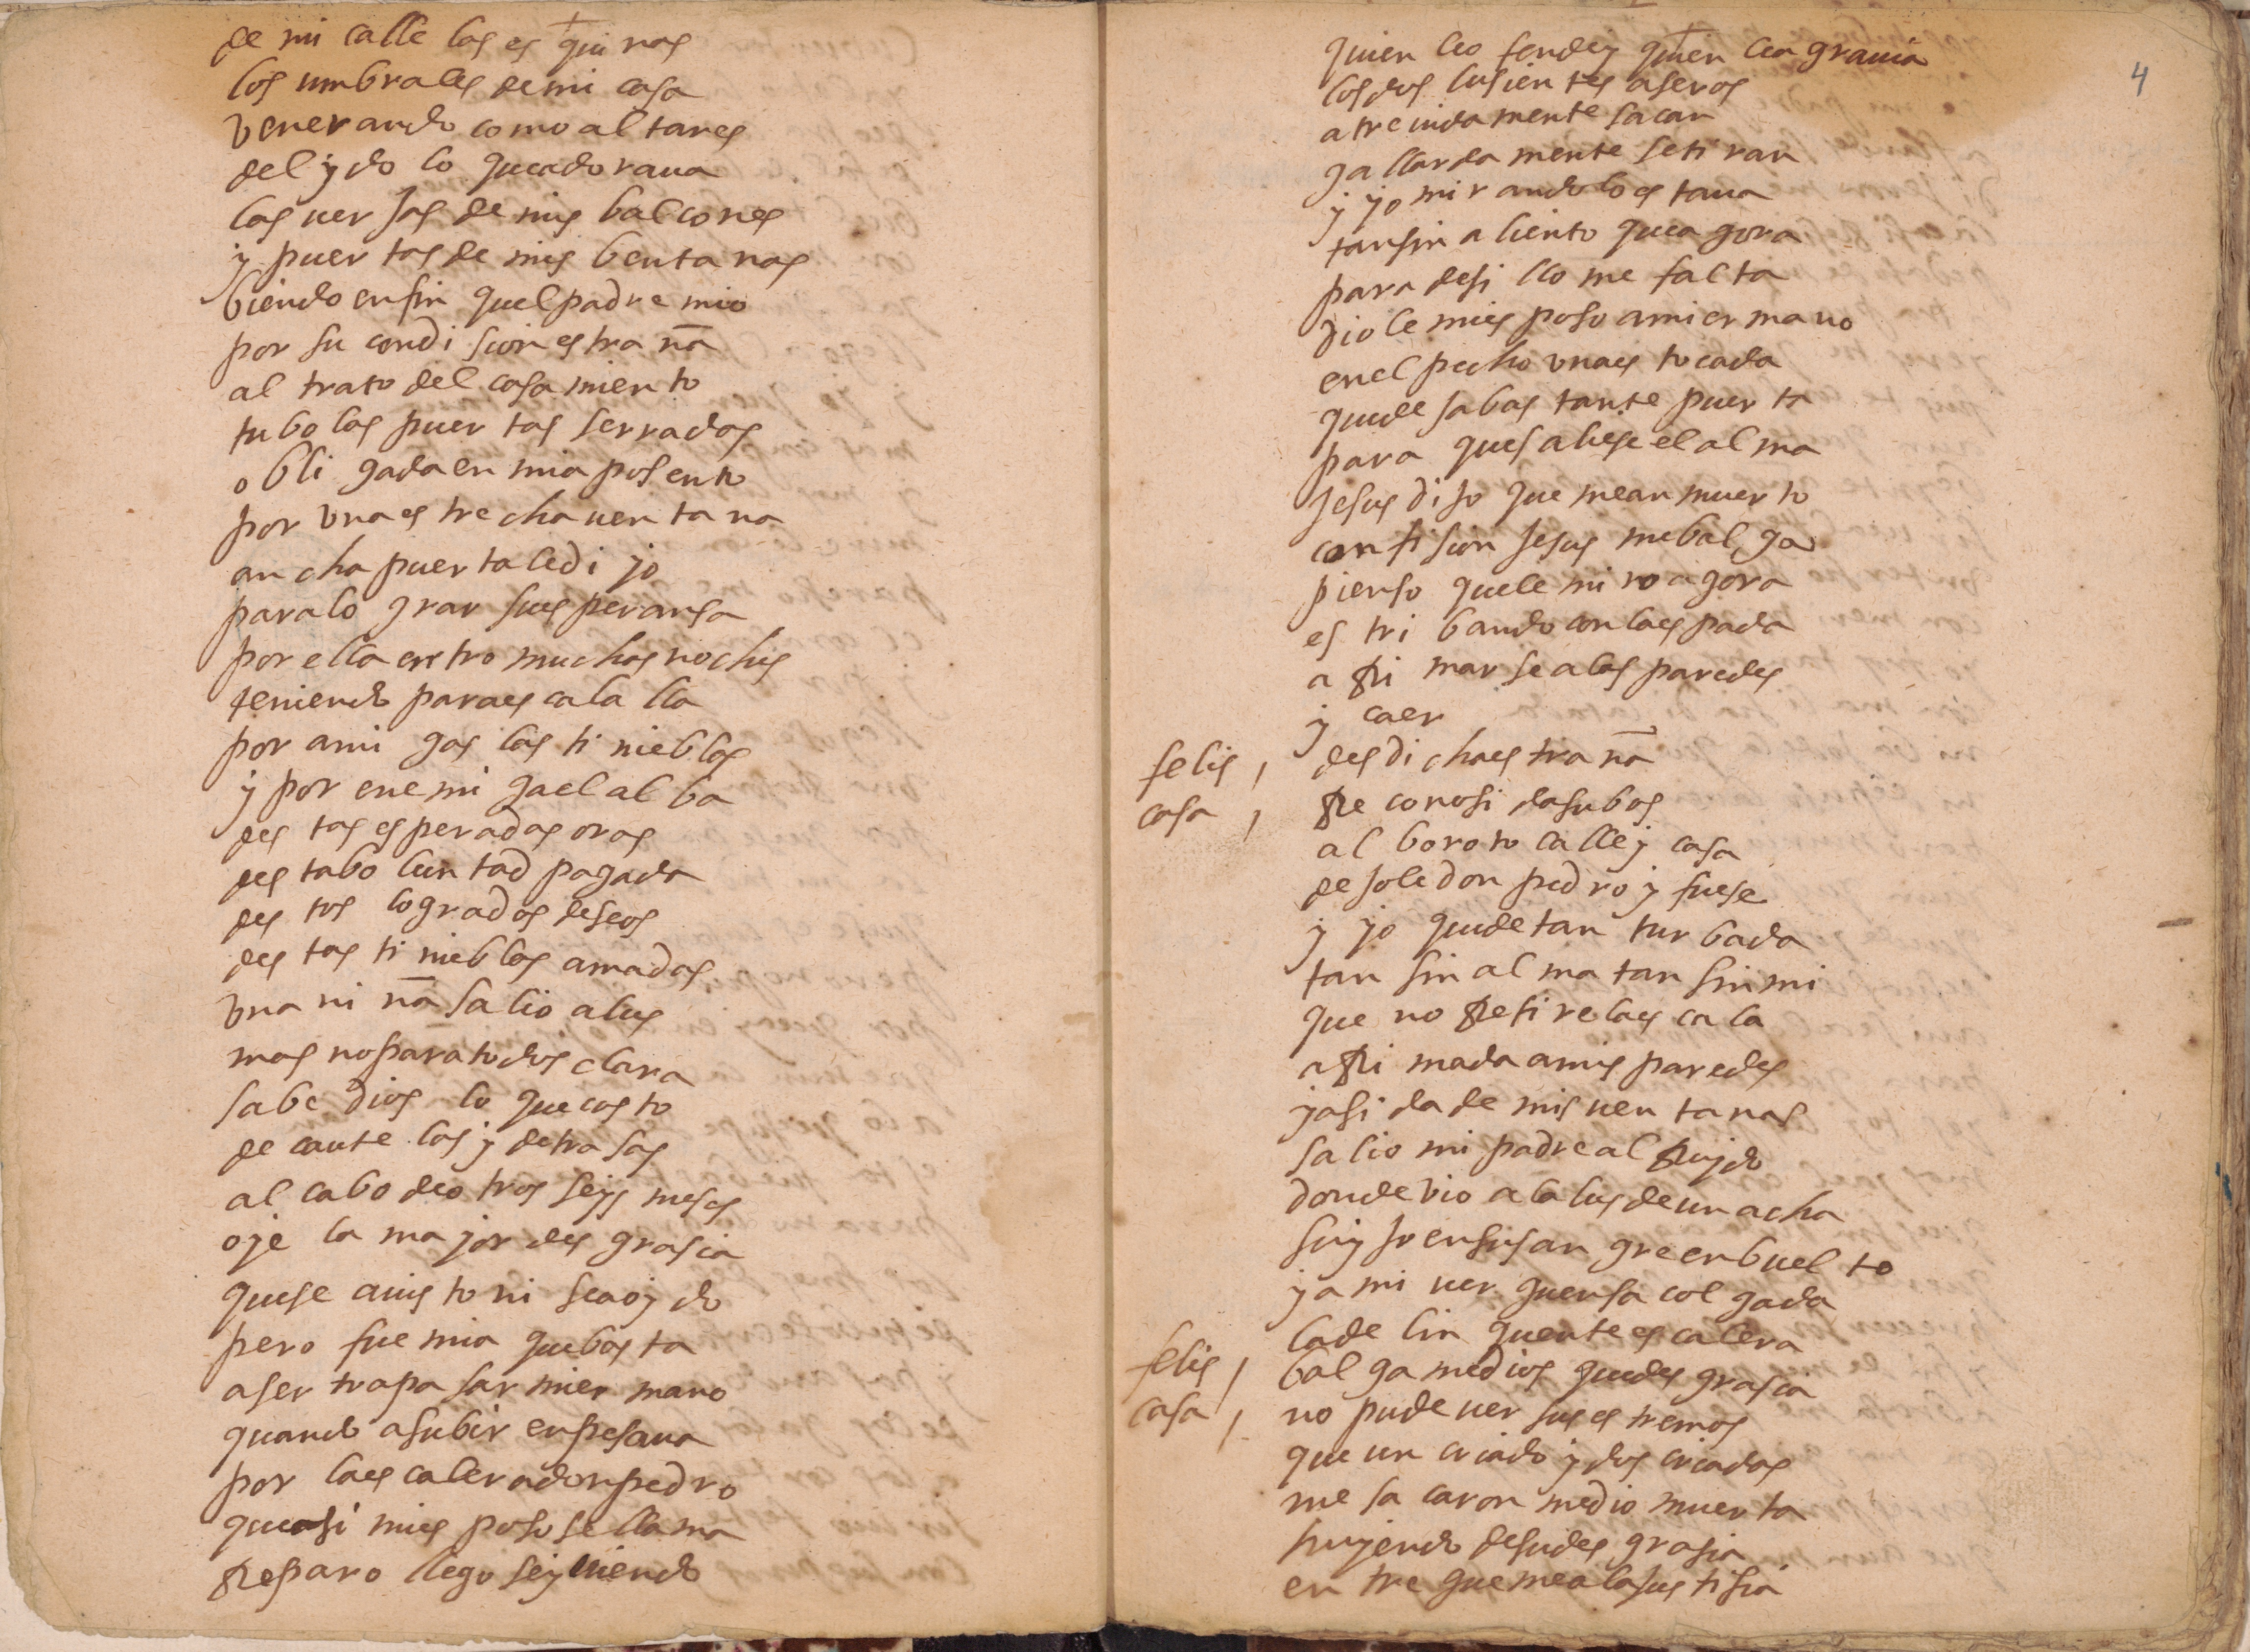 de mi calle las es qui nas
los umbrales de mi casa
venerando como al tares
del ydo lo que adoraua
las uer jas de mis balcones
y puer tas de mis benta nas
biendo en fin quel padre mio
por su condi sion es tra ña
al trato del casa miento
tubo las puer tas serradas
obli gada en mi aposento
por vna es trecha uen ta na
an cha puer ta le di yo
para lo grar sus peransa
por ella entro muchas noches
teniendo para es cala lla
por ami gas las ti nieblas
y por ene mi ga el al ba
des tas es peradas oras
des ta bo lun tad pagada
des tos logrados deseos
des tas ti nieblas amadas
vna ni ña salio a lus
mas no para todos clara
sabe dios lo que cos to
de caute las y de tra sas
al cabo de o tros seys meses
oye la ma yor des grasia
que se a uis to ni se a oy do
pero fue mia que bas ta
a ser trapa sar mi er mano
quando a subir enpesaua
por la es calera don pedro
que asi mi es poso se lla ma
Reparo llego sey uiendo
4
quien lo o fende y quien le a grauia
los dos lusien tes aseros
a tre uida mente sacan
ga llarda mente se ti ran
y yo mi rando lo es taua
tan sin a liento que a gora
para desi llo me fal ta
dio le mi es poso a mi er mano
en el pecho vna es tocada
que de sa bas tan te puer ta
para que saliese el al ma
Jesus di jo que me an muer to
con fi sion Jesus me bal ga
pienso que le mi ro a gora
es tri bando con la es pada
a Rri mar se a las paredes
y caer
felis / des di cha es tra ña
casa / Re conosi da su bos
al boro to calle y casa
de jo le don pedro y fuese
y yo que de tan tur bada
tan sin al ma tan sin mi
que no Reti re la es ca la
a Rri mada a mis paredes
y asi da de mis uen ta nas
salio mi padre al Ruydo
donde vio a la lus de un acha
su yjo en su san gre enbuel to
y a mi uer guensa col gada
la de lin quente es calera
felis / bal ga me dios que des grasia
casa / no pude uer sus es tremos
que un criado y dos criadas
me sa caron medio muer ta
huyendo de su des grasia
en tre gue me a la jus tisia